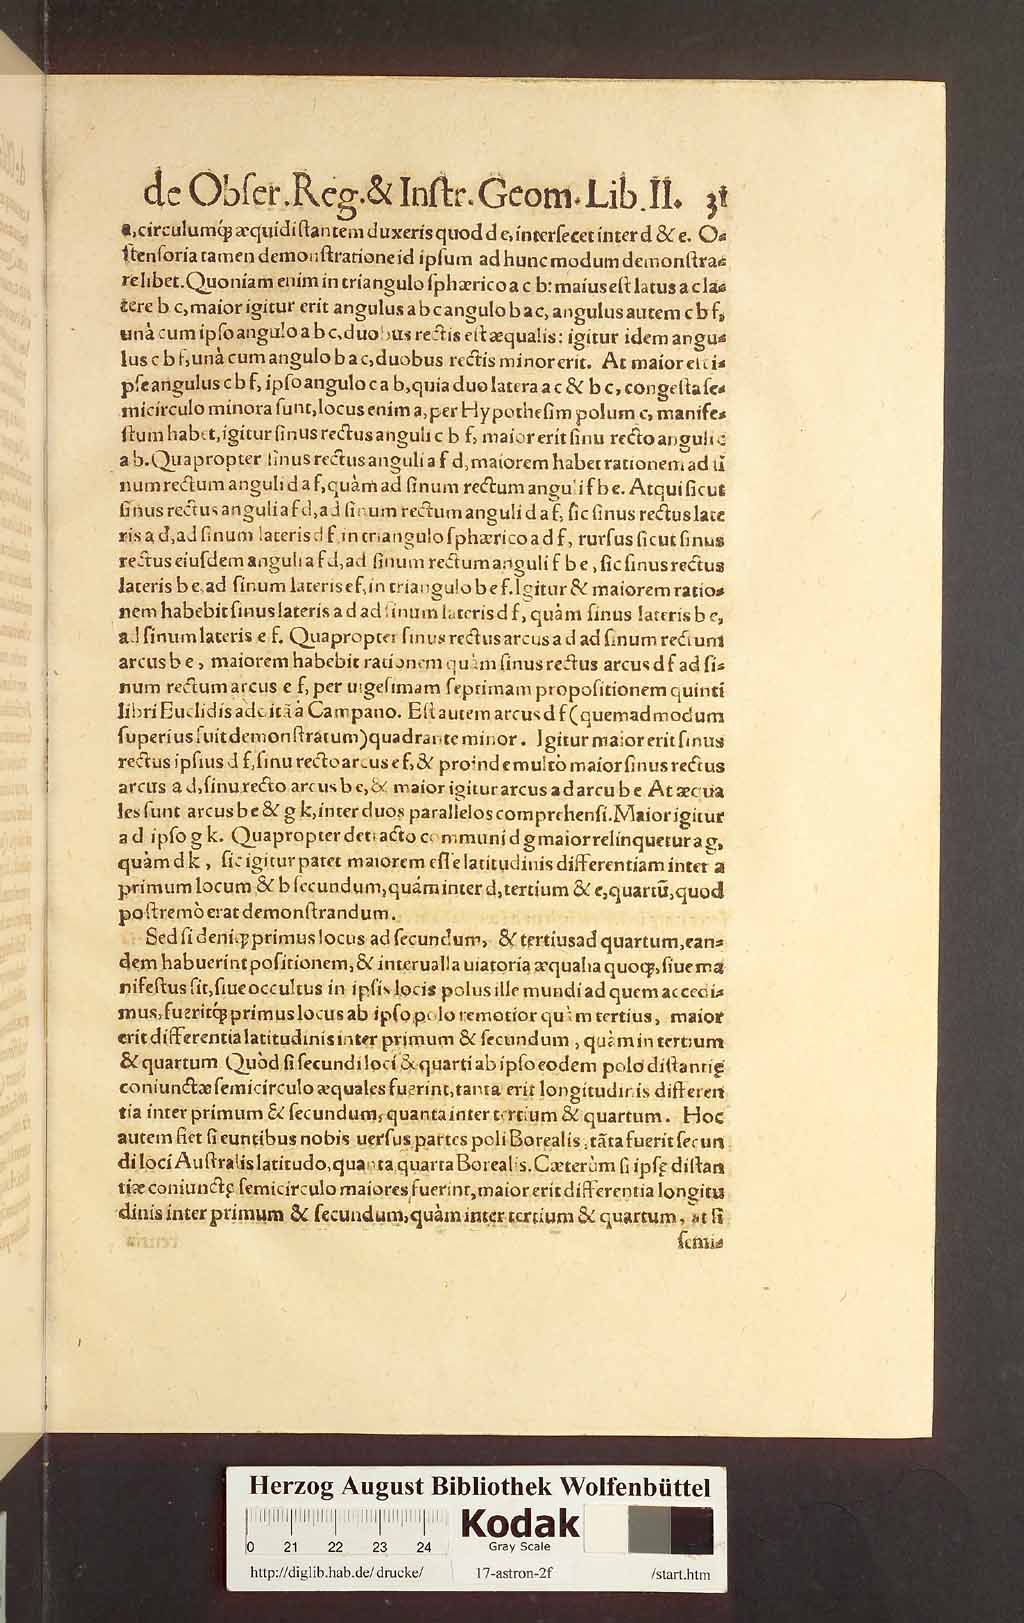 de Obſer. Reg. & Inſtr. Geom. Lib. II. 31
a, circulumq́ꝫ æquidiſtantem duxeris quod d e, interſecet inter d & e. O⸗
ſtenſoria tamen demonſtratione id ipſum ad hunc modum demonſtra⸗
re libet. Quoniam enim in triangulo ſphærico a c b: maius eſt latus a c la⸗
tere b c, maior igitur erit angulus a b c angulo b a c, angulus autem c b f,
unà cum ipſo angulo a b c, duobus rectis eſt æqualis: igitur idem angu⸗
lus c b f, unà cum angulo b a c, duobus rectis minor erit. At maior eſt i⸗
pſe angulus c b f, ipſo angulo c a b, quia duo latera a c & b c, congeſta ſe⸗
micirculo minora ſunt, locus enim a, per Hypotheſim polum c, manife⸗
ſtum habet, igitur ſinus rectus anguli c b f, maior erit ſinu recto anguli c
a b. Quapropter ſinus rectus anguli a f d, maiorem habet rationem ad ſi
num rectum anguli d a f, quàm ad ſinum rectum anguli f b e. Atqui ſicut
ſinus rectus anguli a f d, ad ſinum rectum anguli d a f, ſic ſinus rectus late
ris a d, ad ſinum lateris d f in triangulo ſphærico a d f, rurſus ſicut ſinus
rectus eiuſdem anguli a f d, ad ſinum rectum anguli f b e, ſic ſinus rectus
lateris b e, ad ſinum lateris e f, in triangulo b e f. Igitur & maiorem ratio⸗
nem habebit ſinus lateris a d ad ſinum lateris d f, quàm ſinus lateris b e,
ad ſinum lateris e f. Quapropter ſinus rectus arcus a d ad ſinum rectum
arcus b e, maiorem habebit rationem quàm ſinus rectus arcus d f ad ſi⸗
num rectum arcus e f, per uigeſimam ſeptimam propoſitionem quinti
libri Euclidis adcitā à Campano. Eſt autem arcus d f (quemadmodum
ſuperius fuit demonſtratum) quadrante minor. Igitur maior erit ſinus
rectus ipſius d f, ſinu recto arcus e f, & proinde multò maior ſinus rectus
arcus a d, ſinu recto arcus b e, & maior igitur arcus a d arcu b e At æqua
les ſunt arcus b e & g k, inter duos parallelos comprehenſi. Maior igitur
a d ipſo g k. Quapropter detracto communi d g maior relinquetur a g,
quàm d k, ſic igitur patet maiorem eſſe latitudinis differentiam inter a
primum locum & b ſecundum, quàm inter d, tertium & e, quartū, quod
poſtremò erat demonſtrandum.
Sed ſi deniq́ꝫ primus locus ad ſecundum, & tertius ad quartum, ean⸗
dem habuerint poſitionem, & interualla uiatoria æqualia quoq́ꝫ, ſiue ma
nifeſtus ſit, ſiue occultus in ipſis locis polus ille mundi ad quem accedi⸗
mus, fueritq́ꝫ primus locus ab ipſo polo remotior quàm tertius, maior
erit differentia latitudinis inter primum & ſecundum, quàm in tertium
& quartum Quòd ſi ſecundi loci & quarti ab ipſo eodem polo diſtantię
coniunctæ ſemicirculo æquales fuerint, tanta erit longitudinis differen
tia inter primum & ſecundum, quanta inter tertium & quartum. Hoc
autem fiet ſi euntibus nobis uerſus partes poli Borealis, tāta fuerit ſecun
di loci Auſtralis latitudo, quanta quarta Borealis. Cæterùm ſi ipſę diſtan
tiæ coniunctę ſemicirculo maiores fuerint, maior erit differentia longitu
dinis inter primum & ſecundum, quàm inter tertium & quartum, at ſi
ſemi⸗
Herzog August Bibliothek Wolfenbüttel
0 21 22 23 24
Kodak
Gray Scale
http://diglib.hab.de/drucke/ 17-astron-2f /start.htm